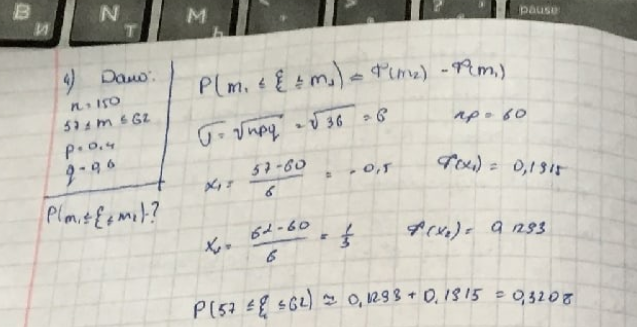 В И N Т M Ь ? pause
4) Дано:
n = 150
57 ≤ m ≤ 62
p = 0.4
q = 0,6
P(m₁ ≤ ξ ≤ m₂) - ?
P(m₁ ≤ ξ ≤ m₂) = Φ(m₂) - Φ(m₁)
σ = √npq = √36 = 6 np = 60
x₁ = (57-60)/6 = -0,5 Φ(x₁) = 0,1915
x₂ = (62-60)/6 = 1/3 Φ(x₂) = 0,1293
P(57 ≤ ξ ≤ 62) ≈ 0,1293 + 0,1915 = 0,3208